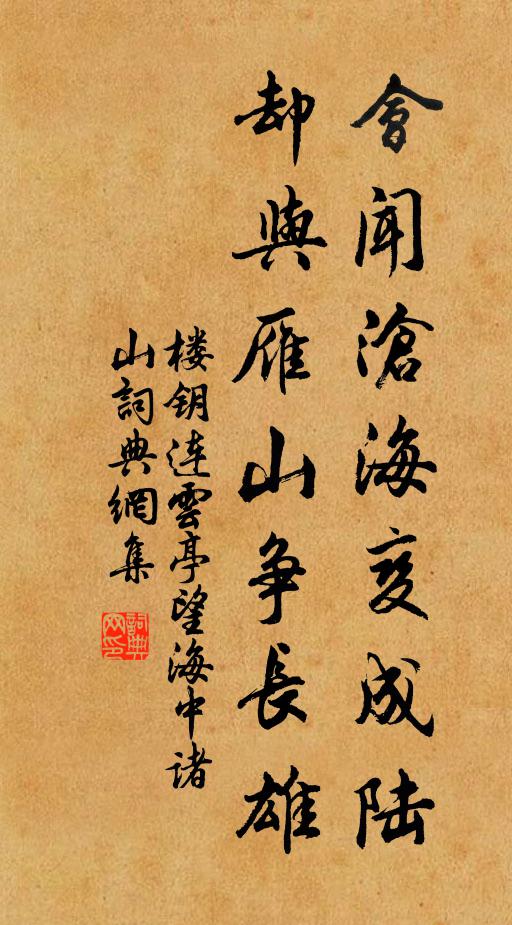 會聞滄海变成陆
却與雁山争長雄
楼钥连雲亭望海中诸
山詞典網集
詞典
网印